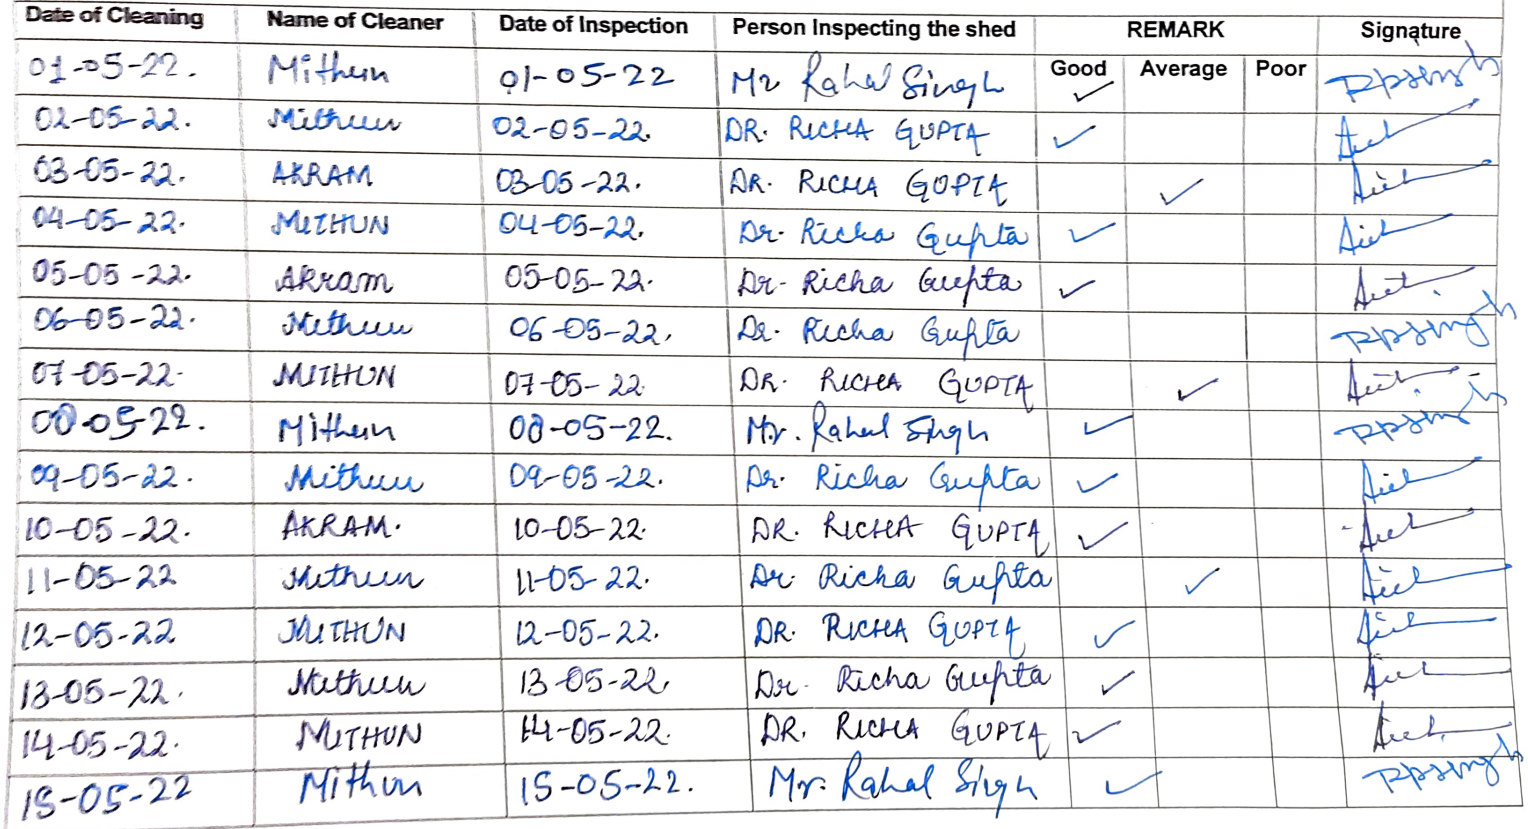 Date of Cleaning Name of Cleaner Date of Inspection Person Inspecting the shed REMARK Signature
Good Average Poor
01-05-22. Mithun 01-05-22 Mr Rahul Singh ✓ Rpsingh
02-05-22. Mithun 02-05-22. DR. RICHA GUPTA ✓
03-05-22. AKRAM 03-05-22. DR. RICHA GUPTA ✓
04-05-22. MITHUN 04-05-22. Dr. Richa Gupta ✓
05-05-22. Akram 05-05-22. Dr. Richa Gupta ✓
06-05-22. Mithun 06-05-22. Dr. Richa Gupta Rpsingh
07-05-22. MITHUN 07-05-22 DR. RICHA GUPTA ✓
08-05-22. Mithun 08-05-22. Mr. Rahul Singh ✓ Rpsingh
09-05-22. Mithun 09-05-22. Dr. Richa Gupta ✓
10-05-22. AKRAM. 10-05-22. DR. RICHA GUPTA ✓
11-05-22 Mithun 11-05-22. Dr. Richa Gupta ✓
12-05-22 MITHUN 12-05-22. DR. RICHA GUPTA ✓
13-05-22. Mithun 13-05-22. Dr. Richa Gupta ✓
14-05-22. MITHUN 14-05-22. DR. RICHA GUPTA ✓
15-05-22 Mithun 15-05-22. Mr. Rahul Singh ✓ Rpsingh